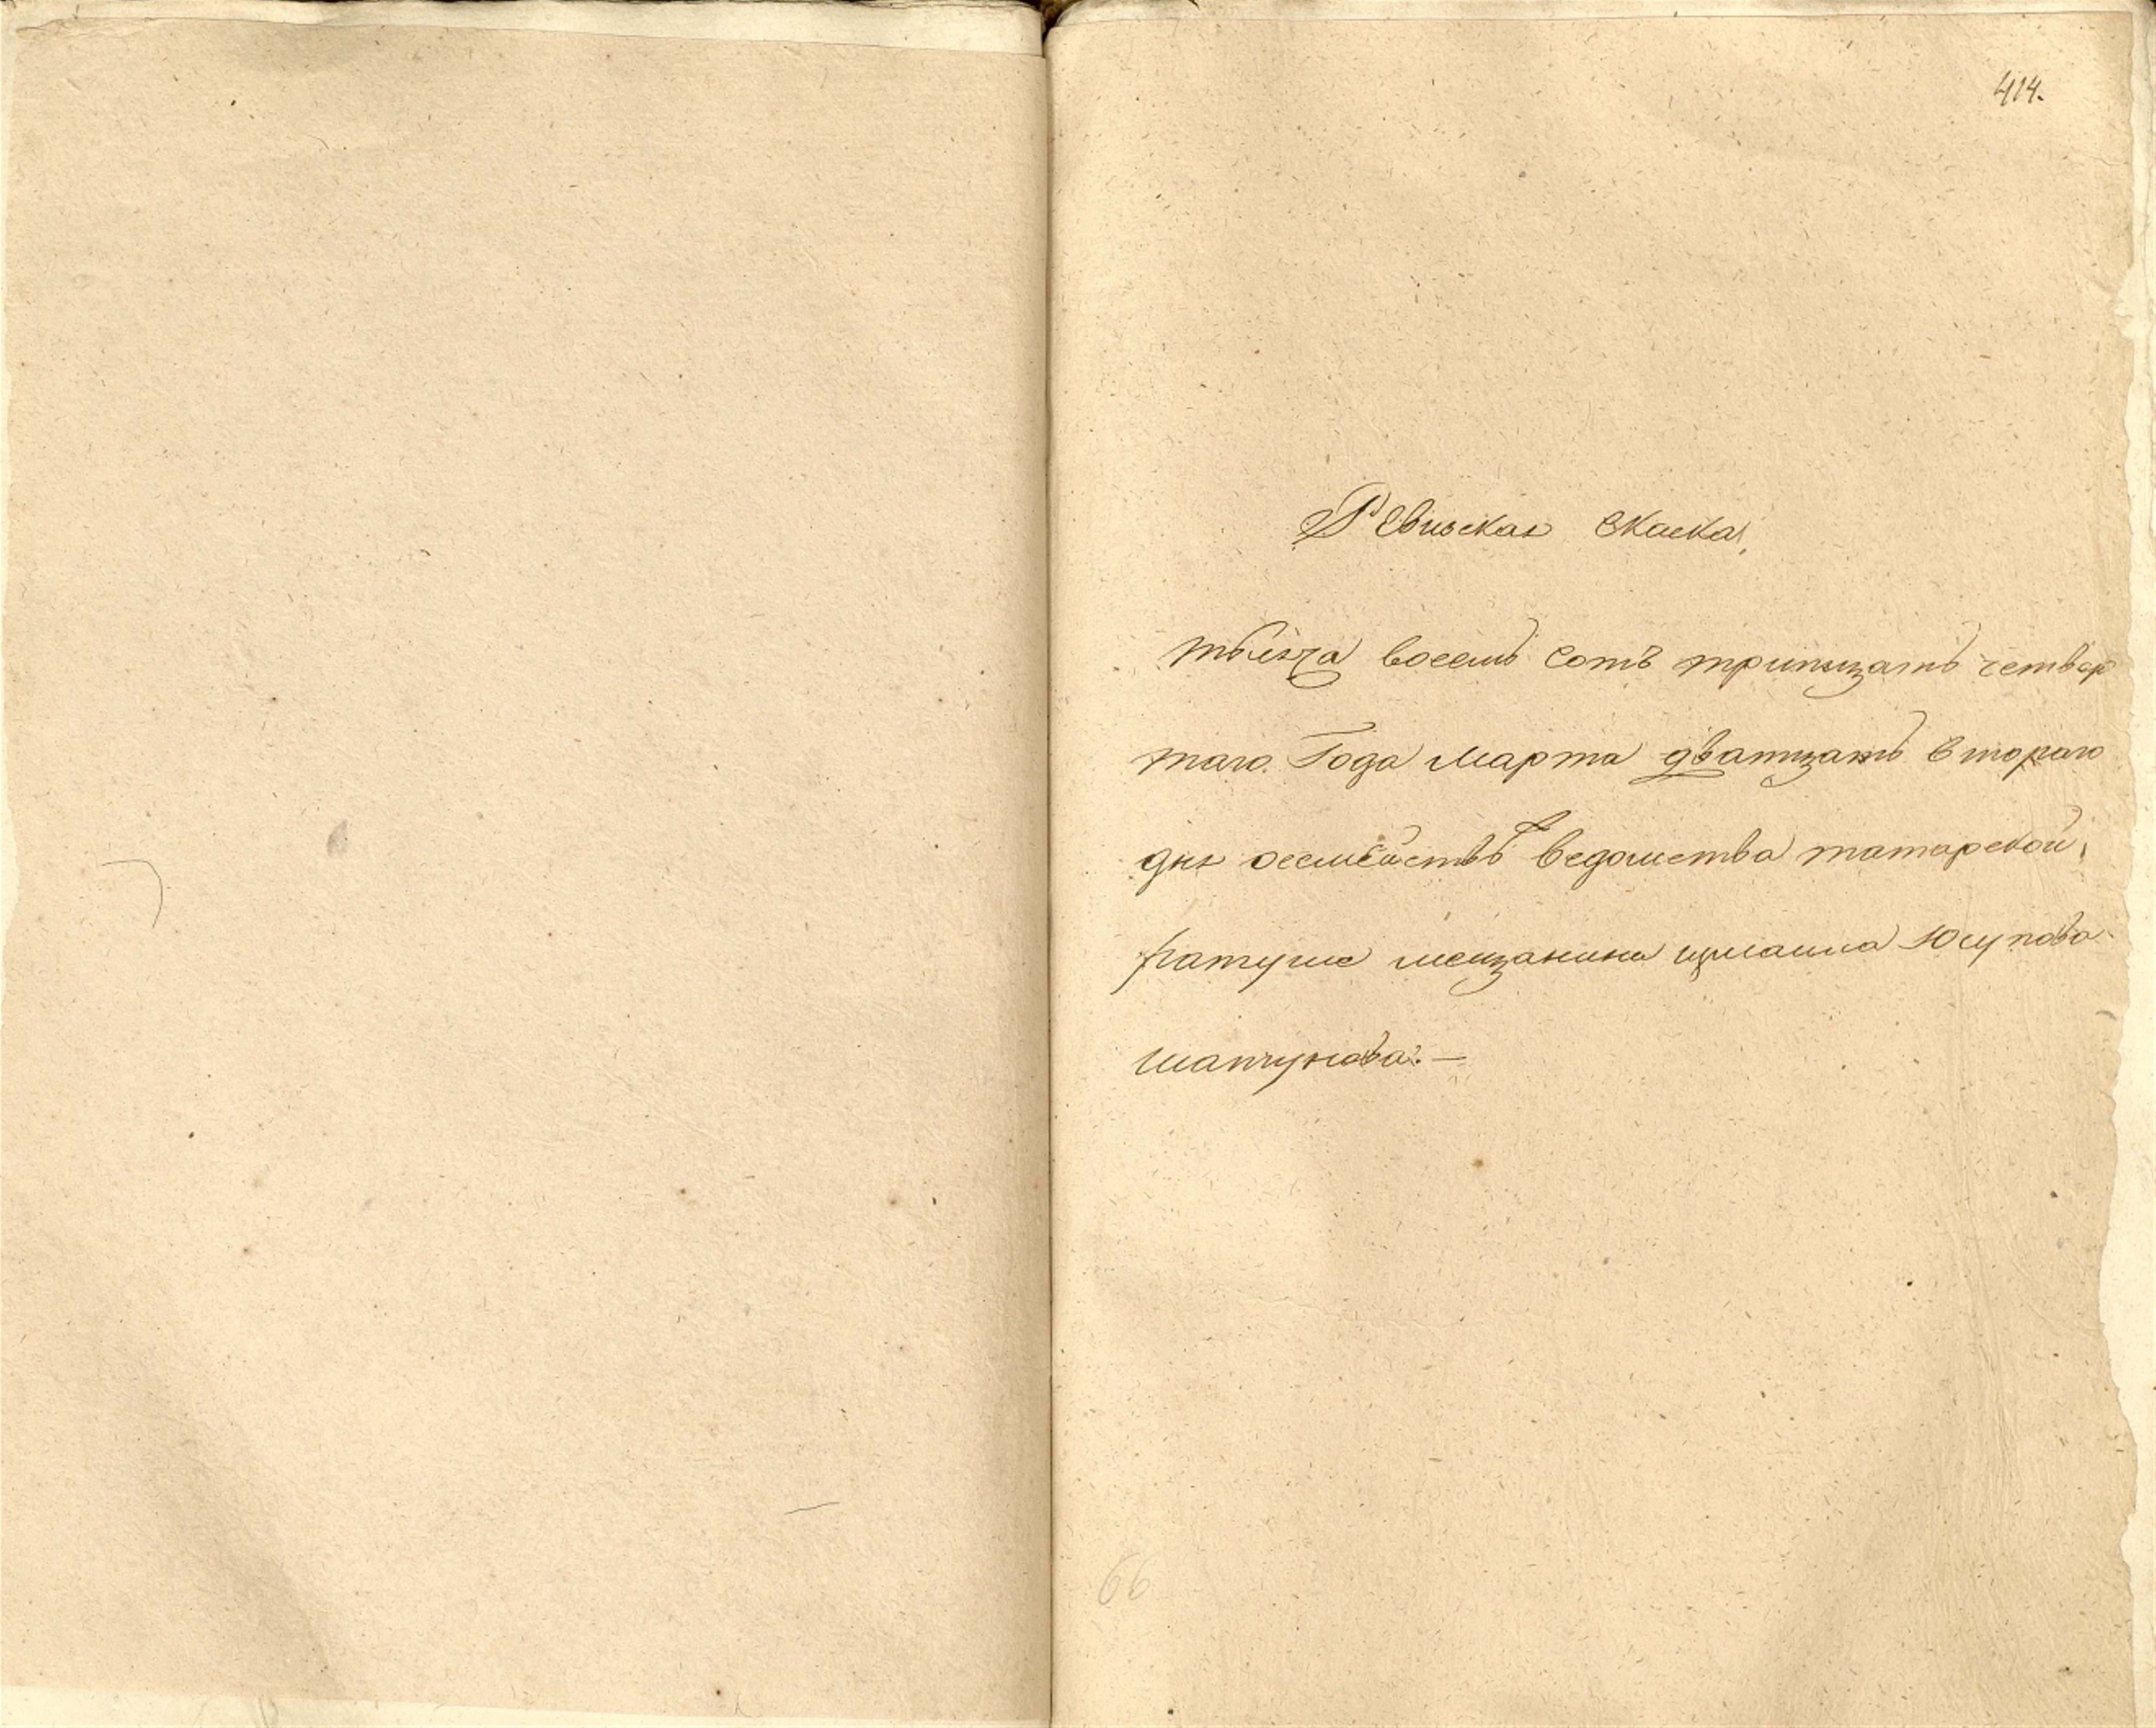 414.
Ревиская скаска,
тысяча восемь сотъ тритцать четвер
таго Года марта дватцать втораго
дня осемействѣ ведомства татарской
ратуше мещанина измаила Юсупова
шапчунова. —
66